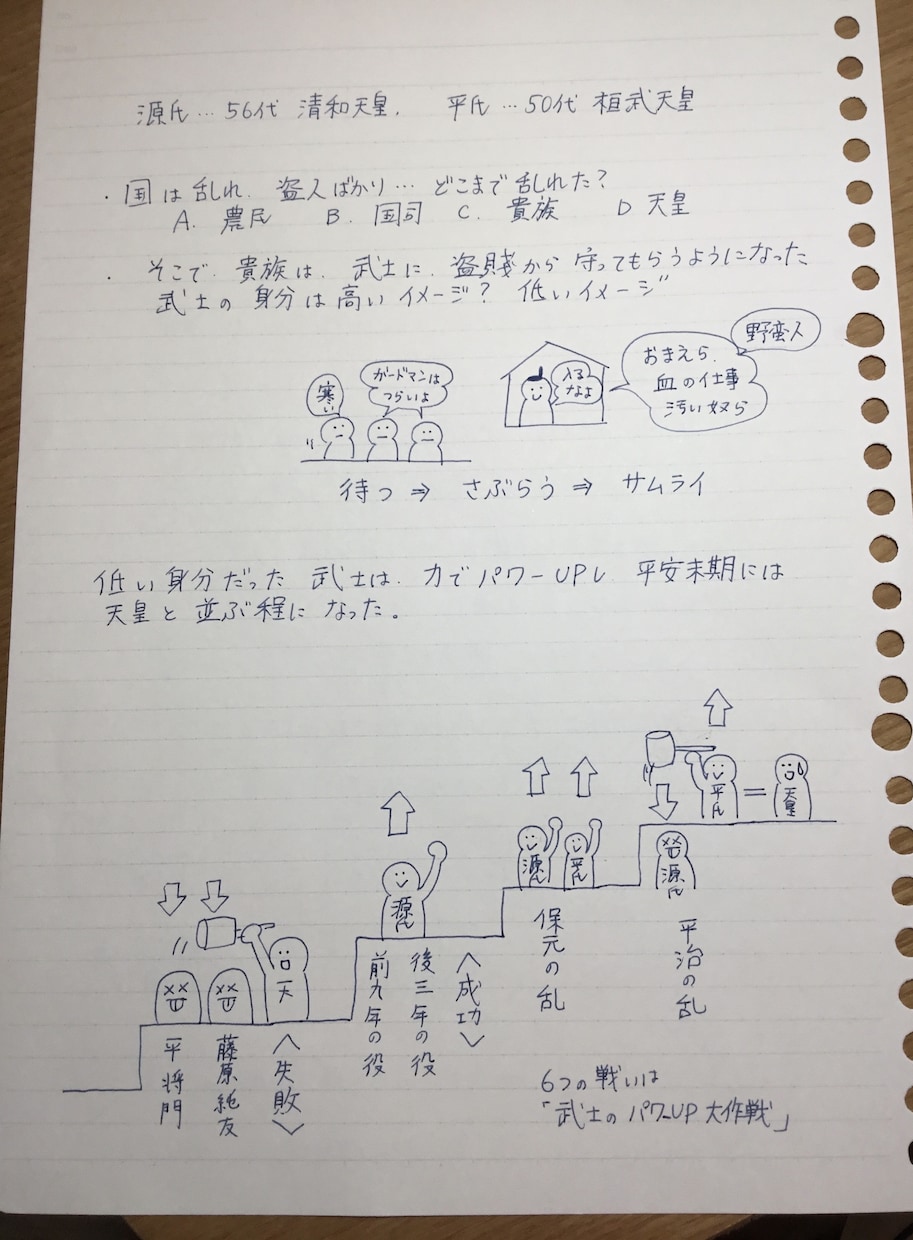 源氏…56代 清和天皇. 平氏…50代 桓武天皇
・国は乱れ. 盗人ばかり… どこまで乱れた?
A. 農民 B. 国司 C. 貴族 D 天皇
・そこで. 貴族は. 武士に. 盗賊から 守ってもらうようになった
武士の 身分は高いイメージ? 低いイメージ
寒い
ガードマンは
つらいよ
入る
なよ
おまえら.
血の仕事
汚い奴ら
野蛮人
待つ ⇒ さぶらう ⇒ サムライ
低い身分だった 武士は. 力でパワーUPし 平安末期には
天皇と 並ぶ程に なった。
天
平将門
藤原純友
<失敗>
源氏
前九年の役
後三年の役
<成功>
源氏
平氏
保元の乱
平氏
=
天皇
源氏
平治の乱
6つの戦いは
「武士の パワーUP 大作戦」